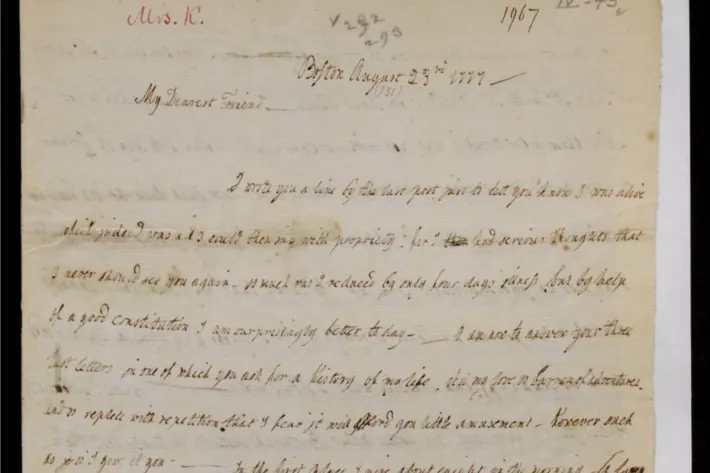 Mrs. K.
292
293
1967
Boston August 23rd 1777 —
(781)
My Dearest Friend —
I wrote you a line by the last post just to let you know I was alive
which indeed was all I could then say with propriety for I had serious thoughts that
I never should see you again — so much was I reduced by only four days illness but by help
of a good constitution I am surprisingly better today — I am now to answer your three
last letters in one of which you ask for a history of my life it is my love so Barren of adventures
and so replete with repetition that I fear it will afford you little amusement — however such
as it is I give it you — In the first place I rise about eight in the morning